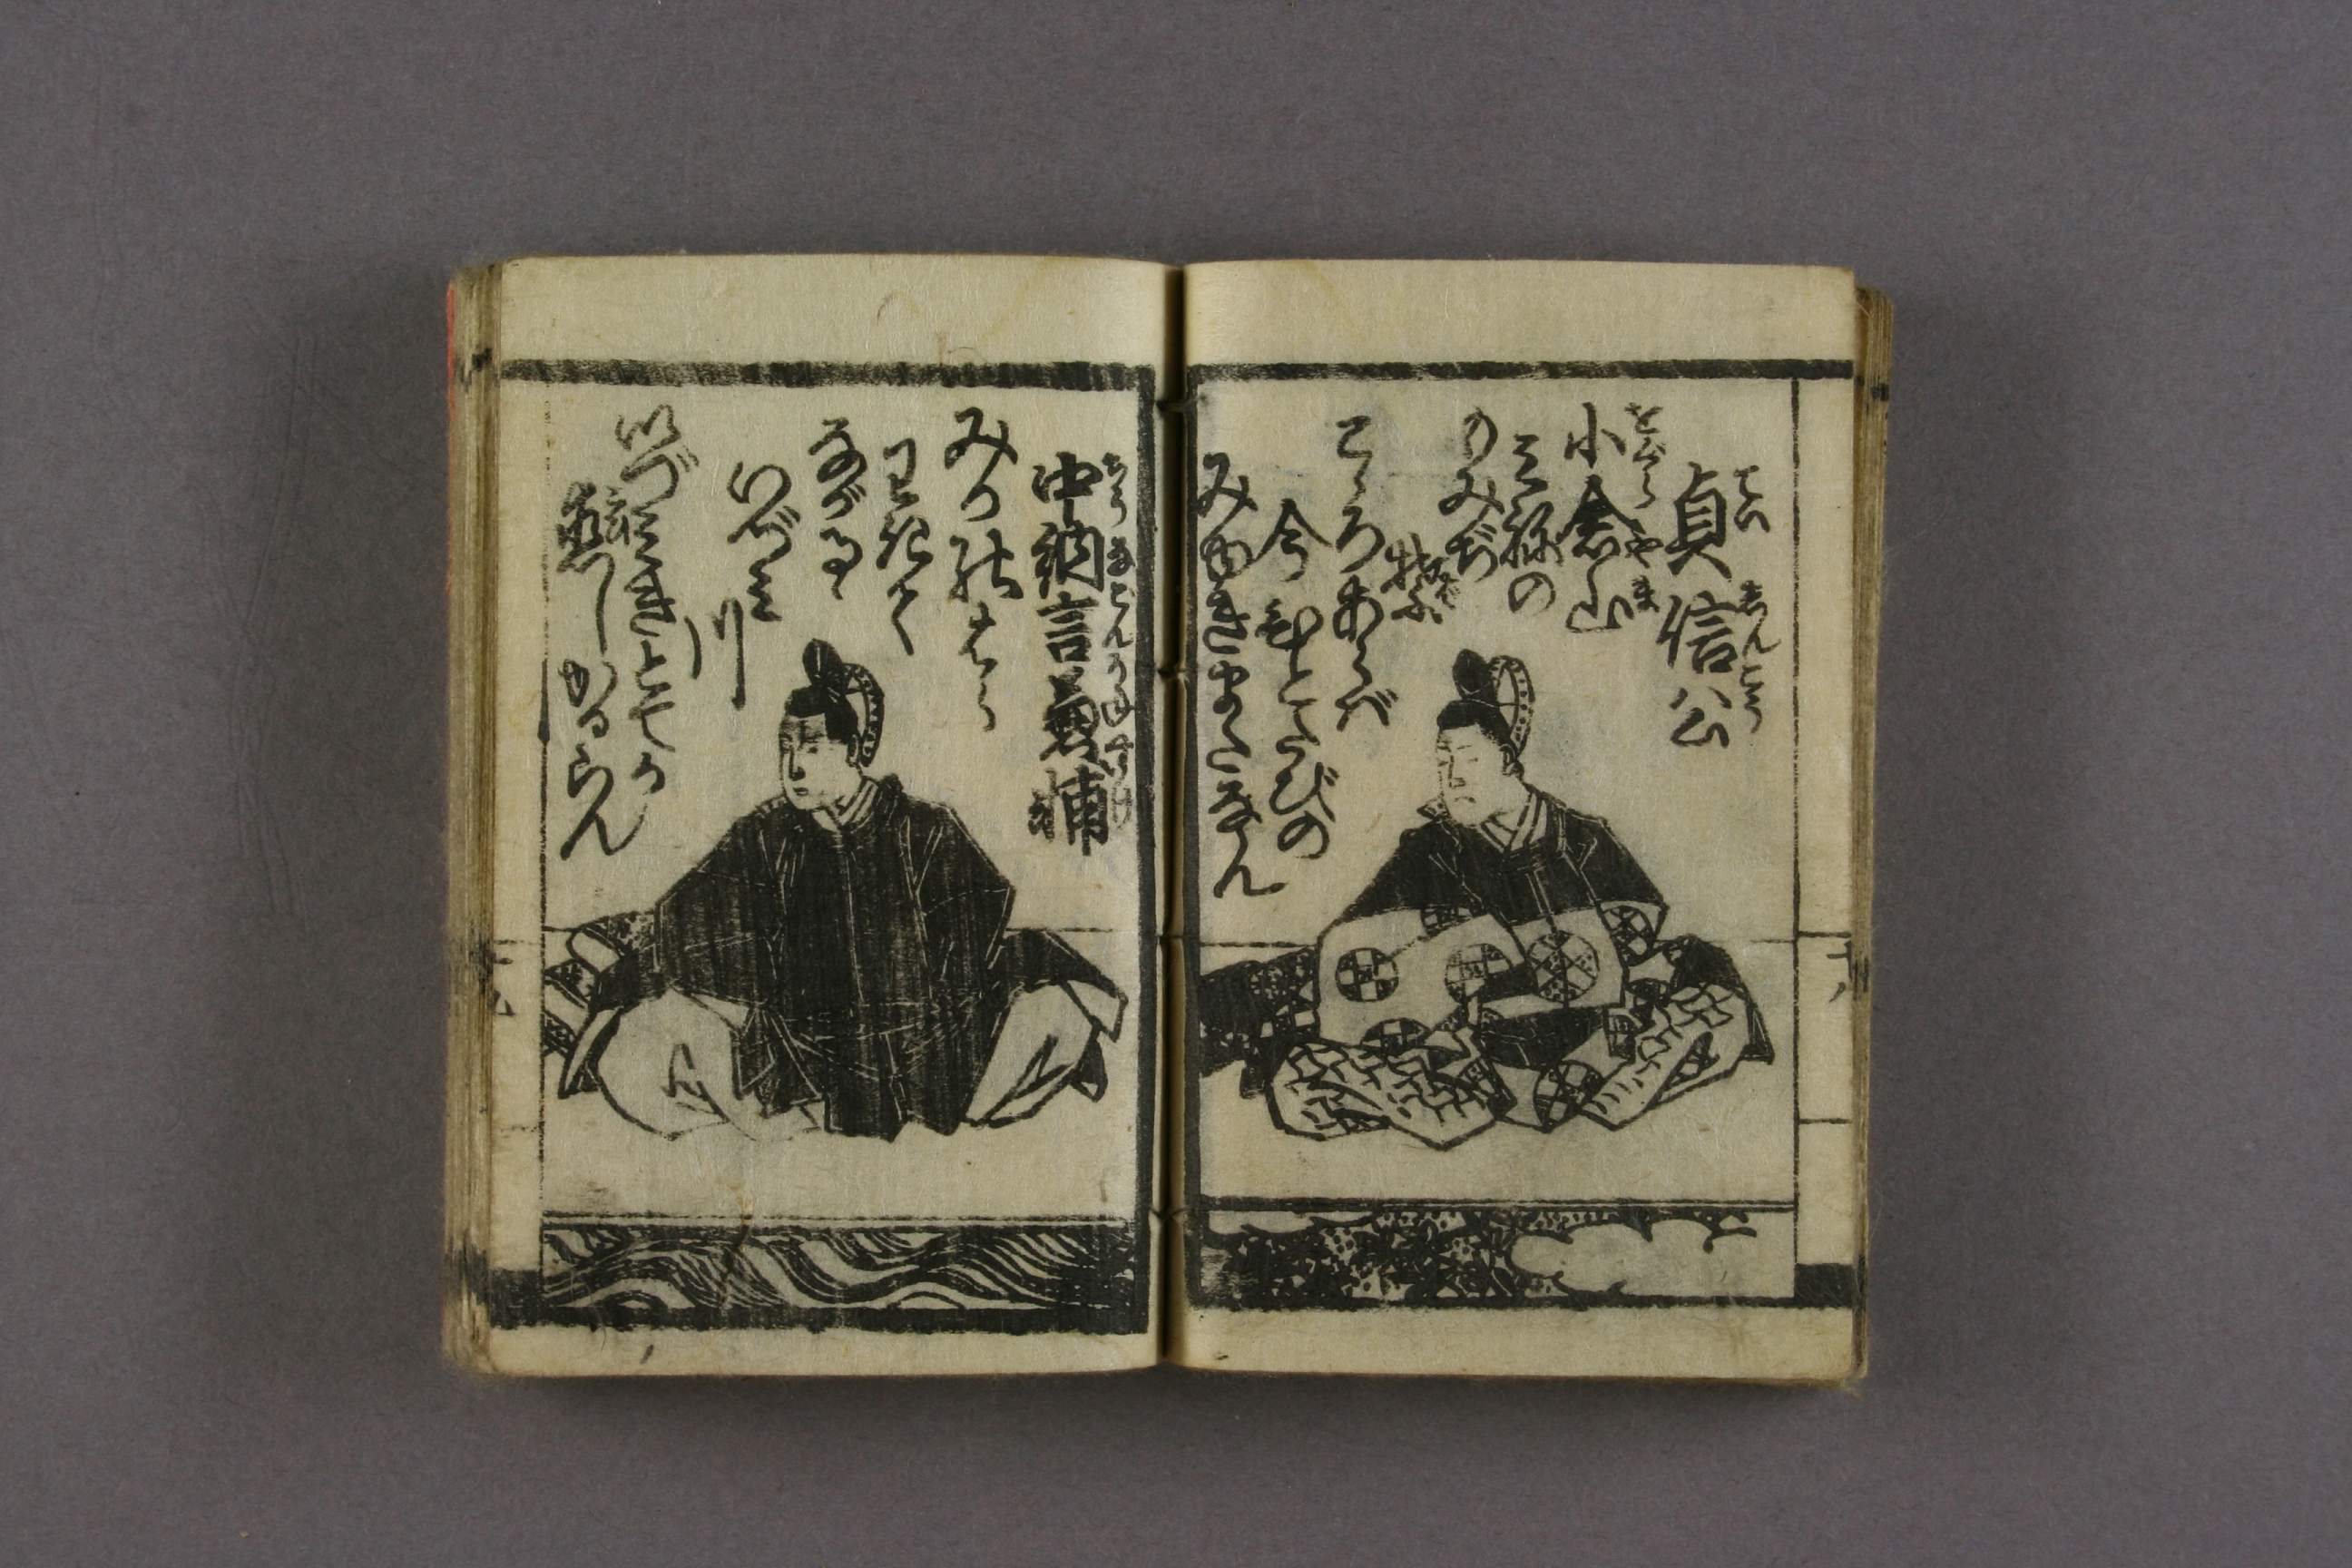 貞信公
ていしんこう
小倉山
をぐらやま
みねの
のみぢ
こゝろあらば
今ひとたびの
みゆきまたなん
中納言兼輔
ちうなごんかねすけ
みかのはら
わきて
ながるゝ
いづみ
川
いつみきとてか
恋しかるらん